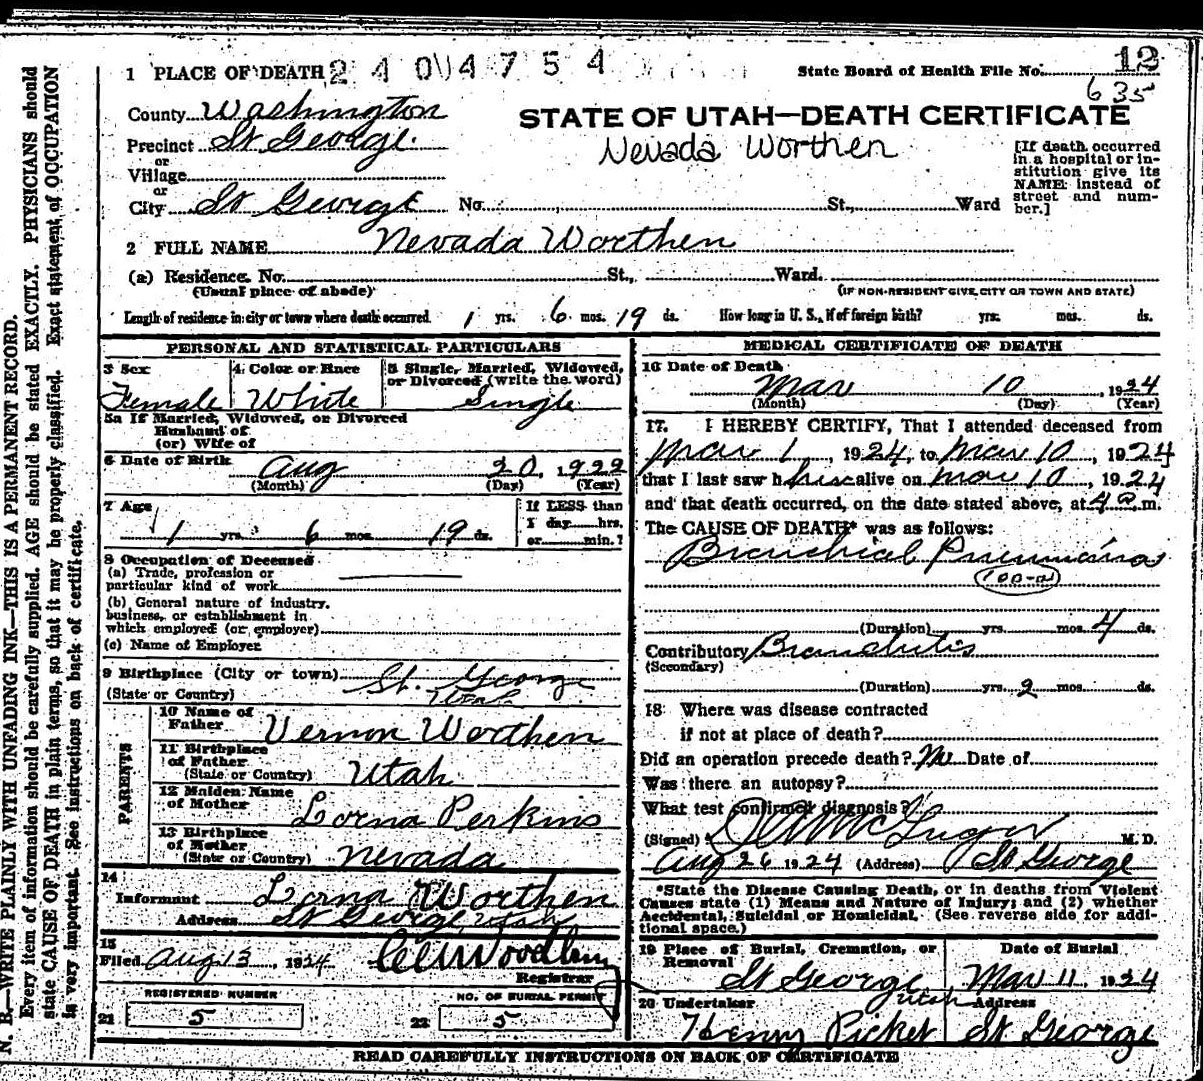 1 PLACE OF DEATH 2 4 0 4 7 5 4
State Board of Health File No. 12
635
County Washington
STATE OF UTAH—DEATH CERTIFICATE
Precinct St George.
Nevada Worthen
[If death occurred in a hospital or institution give its NAME instead of street and number.]
or
Village
or
City St George No. St., Ward
2 FULL NAME Nevada Worthen
(a) Residence. No. St., Ward.
(Usual place of abode) (IF NON-RESIDENT GIVE CITY OR TOWN AND STATE)
Length of residence in city or town where death occurred 1 yrs. 6 mos. 19 ds. How long in U. S., if of foreign birth? yrs. mos. ds.
PERSONAL AND STATISTICAL PARTICULARS
3 Sex 4 Color or Race 5 Single, Married, Widowed, or Divorced (write the word)
Female White Single
5a If Married, Widowed, or Divorced
Husband of
(or) Wife of
6 Date of Birth Aug 20, 1922
(Month) (Day) (Year)
7 Age 1 yrs. 6 mos. 19 ds.
If LESS than
1 day hrs.
or min.?
8 Occupation of Deceased
(a) Trade, profession or
particular kind of work
(b) General nature of industry,
business, or establishment in
which employed (or employer)
(c) Name of Employer
9 Birthplace (City or town) St. George
(State or Country) Utah
PARENTS
10 Name of
Father Vernon Worthen
11 Birthplace
of Father
(State or Country) Utah
12 Maiden Name
of Mother Lorna Perkins
13 Birthplace
of Mother
(State or Country) Nevada
14
Informant Lorna Worthen
Address St George Utah
15
Filed Aug 13, 1924
Registrar
REGISTERED NUMBER NO. OF BURIAL PERMIT
21 5 22 5
MEDICAL CERTIFICATE OF DEATH
16 Date of Death
Mar 10, 1924
(Month) (Day) (Year)
17. I HEREBY CERTIFY, That I attended deceased from
Mar 1, 1924, to Mar 10, 1924
that I last saw h alive on Mar 10, 1924
and that death occurred, on the date stated above, at 4 a m.
The CAUSE OF DEATH* was as follows:
Bronchial Pneumonia
(100-a)
(Duration) yrs. mos. 4 ds.
Contributory Bronchitis
(Secondary)
(Duration) yrs. 2 mos. ds.
18 Where was disease contracted
if not at place of death?
Did an operation precede death? No Date of
Was there an autopsy?
What test confirmed diagnosis?
(Signed) M. D.
Aug 26 1924 (Address) St George
*State the Disease Causing Death, or in deaths from Violent
Causes state (1) Means and Nature of Injury; and (2) whether
Accidental, Suicidal or Homicidal. (See reverse side for addi-
tional space.)
19 Place of Burial, Cremation, or Removal Date of Burial
St George Utah Mar 11, 1924
20 Undertaker Address
Henry Picket St George
READ CAREFULLY INSTRUCTIONS ON BACK OF CERTIFICATE
N. B.—WRITE PLAINLY WITH UNFADING INK—THIS IS A PERMANENT RECORD.
Every item of information should be carefully supplied. AGE should be stated EXACTLY. PHYSICIANS should
state CAUSE OF DEATH in plain terms, so that it may be properly classified. Exact statement of OCCUPATION
is very important. See instructions on back of certificate.